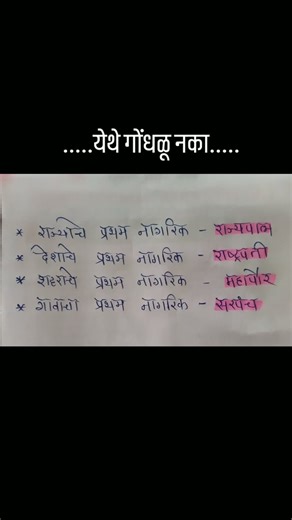 .....येथे गोंधळू नका.....
* राज्याचे प्रथम नागरिक - राज्यपाल
* देशाचे प्रथम नागरिक - राष्ट्रपती
* शहराचे प्रथम नागरिक - महापौर
* गावाचा प्रथम नागरिक - सरपंच